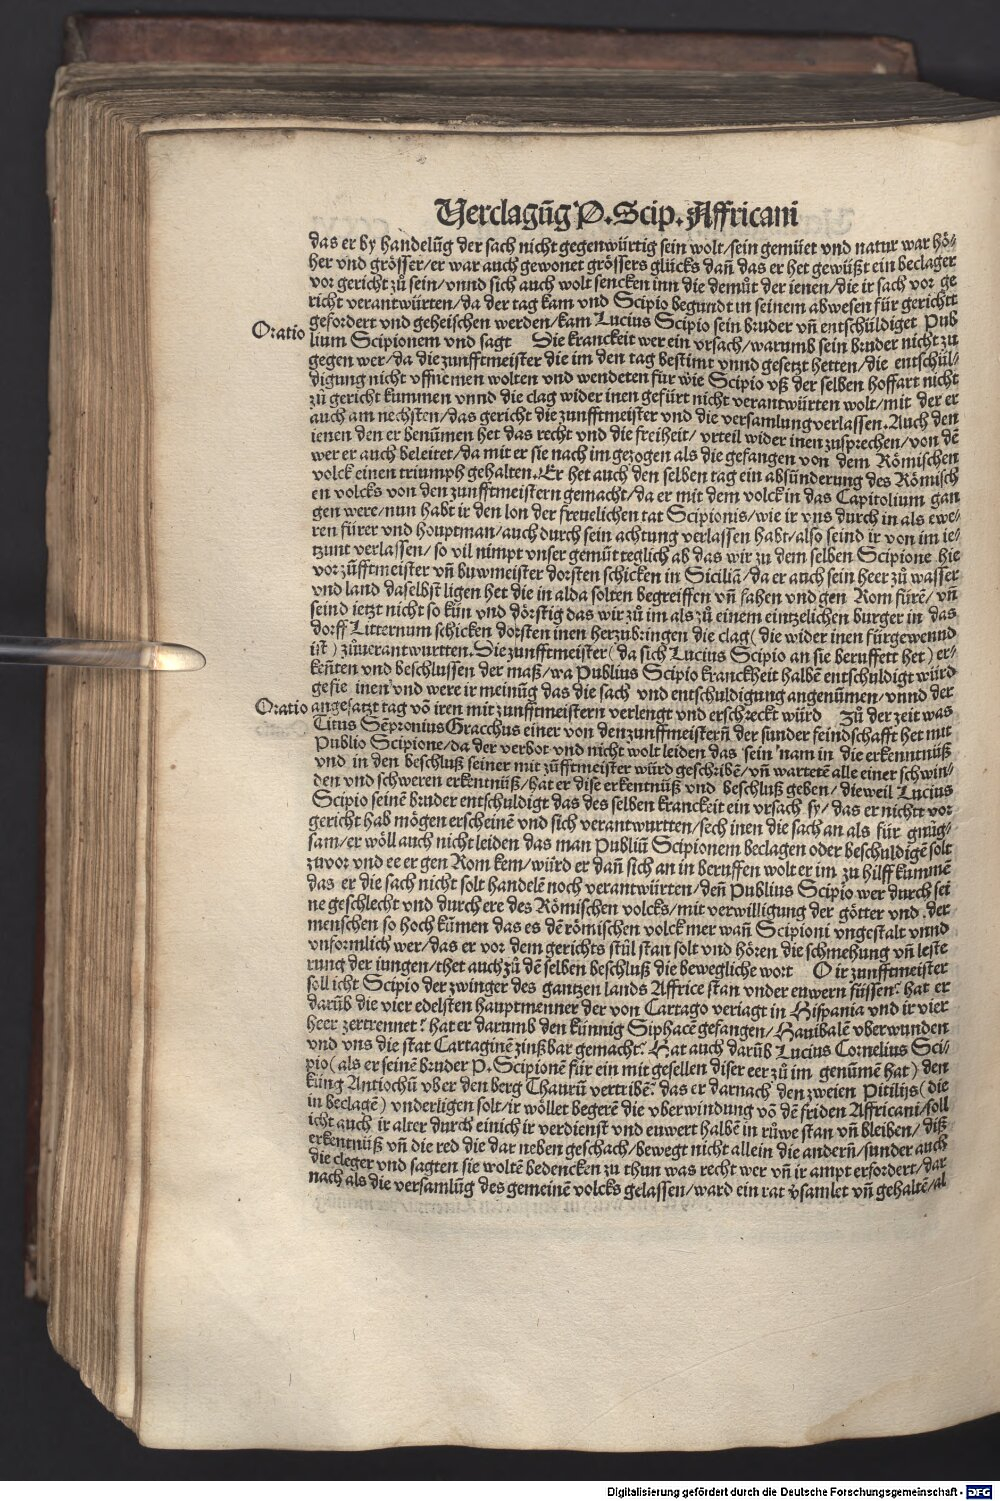 Verclagũg P. Scip. Affricani
das er by handelũg der sach nicht gegenwürtig sein wolt/sein gemüet vnd natur war hö⸗
her vnd grösser/er war auch gewonet grössers glücks dañ das er het gewüßt ein beclager
vor gericht zů sein/vnnd sich auch wolt sencken inn die demůt der ienen/die ir sach vor ge
richt verantwürten/da der tag kam vnd Scipio begundt in seinem abwesen für gerichtt
gefordert vnd geheischen werden/kam Lucius Scipio sein bruder vñ entschüldiget Pub
Oratio
lium Scipionem vnd sagt Die kranckeit wer ein vrsach/warumb sein bruder nicht zu
gegen wer/da die zunfftmeister die im den tag bestimt vnnd gesetzt hetten/die entschül⸗
digung nicht vffnemen wolten vnd wendeten für wie Scipio vß der selben hoffart nicht
zů gericht kummen vnnd die clag wider inen gefürt nicht verantwürten wolt/mit der er
auch am nechsten/das gericht die zunfftmeister vnd die versamlung verlassen. Auch den
ienen den er benümen het das recht vnd die freiheit/ vrteil wider inen zusprechen/von dē
wer er auch beleitet/da mit er sie nach im gezogen als die gefangen von dem Römischen
volck einen triumph gehalten. Er het auch den selben tag ein absünderung des Römisch
en volcks von den zunfftmeistern gemacht/da er mit dem volck in das Capitolium gan
gen were/nun habt ir den lon der freuelichen tat Scipionis/wie ir vns durch in als ewe⸗
ren fürer vnd houptman/auch durch sein achtung verlassen habt/also seind ir von im ie⸗
tzunt verlassen/so vil nimpt vnser gemüt teglich ab das wir zu dem selben Scipione hie
vor zũfftmeister vñ buwmeister dorsten schicken in Siciliā/da er auch sein heer zů wasser
vnd land daselbst ligen het die in alda solten begreiffen vñ fahen vnd gen Rom fürē/ vñ
seind ietzt nicht so kün vnd dörstig das wir zů im als zů einem eintzelichen burger in das
dorff Litternum schicken dorsten inen herzubringen die clag (die wider inen fürgewennd
ist) zůuerantwurtten. Die zunfftmeister (da sich Lucius Scipio an sie beruffett het) er⸗
keñten vnd beschlussen der maß/wa Publius Scipio kranckheit halbē entschuldigt würd
gefie inen vnd were ir meinũg das die sach vnd entschuldigung angenũmen/vnnd der
Oratio
angesatzt tag vō iren mit zunfftmeistern verlengt vnd erschreckt würd Zů der zeit was
Titus Sēpronius Gracchus einer von den zunfftmeisterñ der sunder feindschafft het mit
Publio Scipione/da der verbot vnd nicht wolt leiden das sein nam in die erkenntnüß
vnd in den beschluß seiner mit zũfftmeister würd geschribē/vñ wartetē alle einer schwin⸗
den vnd schweren erkentnüß/hat er dise erkentnüß vnd beschluß geben/ dieweil Lucius
Scipio seinē bruder entschuldigt das des selben kranckeit ein vrsach sy/das er nichtt vor
gericht hab mögen erscheinē vnd sich verantwurtten/sech inen die sach an als für gnũg⸗
sam/er wöll auch nicht leiden das man Publiũ Scipionem beclagen oder beschuldigē solt
zuvor vnd ee er gen Rom kem/würd er dañ sich an in beruffen wolt er im zu hilff kummē
das er die sach nicht solt handelē noch verantwürten/deñ Publius Scipio wer durch sei
ne geschlecht vnd durch ere des Römischen volcks/mit verwilligung der götter vnd der
menschen so hoch kũmen das es dē römischen volck mer wañ Scipioni vngestalt vnnd
vnformlich wer/das er vor dem gerichts stůl stan solt vnd hören die schmehung vñ leste
rung der jungen/thet auch zů dē selben beschluß die bewegliche wort O ir zunfftmeister
soll icht Scipio der zwinger des gantzen lands Affrice stan vnder euwern füssen? hat er
darũb die vier edelsten hauptmenner der von Cartago veriagt in Hispania vnd ir vier
heer zertrennet? hat er darumb den künnig Siphacē gefangen/Hanibalē vberwunden
vnd vns die stat Cartaginē zinßbar gemacht? Hat auch darũb Lucius Cornelius Sci⸗
pio (als er seinē bruder P. Scipionē für ein mit gesellen diser eer zů im genũmē hat) den
küng Antiochũ vber den berg Thaurũ vertribē? das er darnach den zweien Pitilijs (die
in beclagē) vnderligen solt/ir wöllet begerē die vberwindung vō dē friden Affricani/soll
icht auch ir alter durch einich ir verdienst vnd euwert halbē in růwe stan vñ bleiben/ diß
erkentnüß vñ die red die dar neben geschach/bewegt nicht allein die anderñ/sunder auch
die cleger vnd sagten sie woltē bedencken zu thun was recht wer vñ ir ampt erfordert/dar
nach als die versamlũg des gemeinē volcks gelassen/ward ein rat v̓samlet vñ gehaltē/al
Digitalisierung gefördert durch die Deutsche Forschungsgemeinschaft - DFG